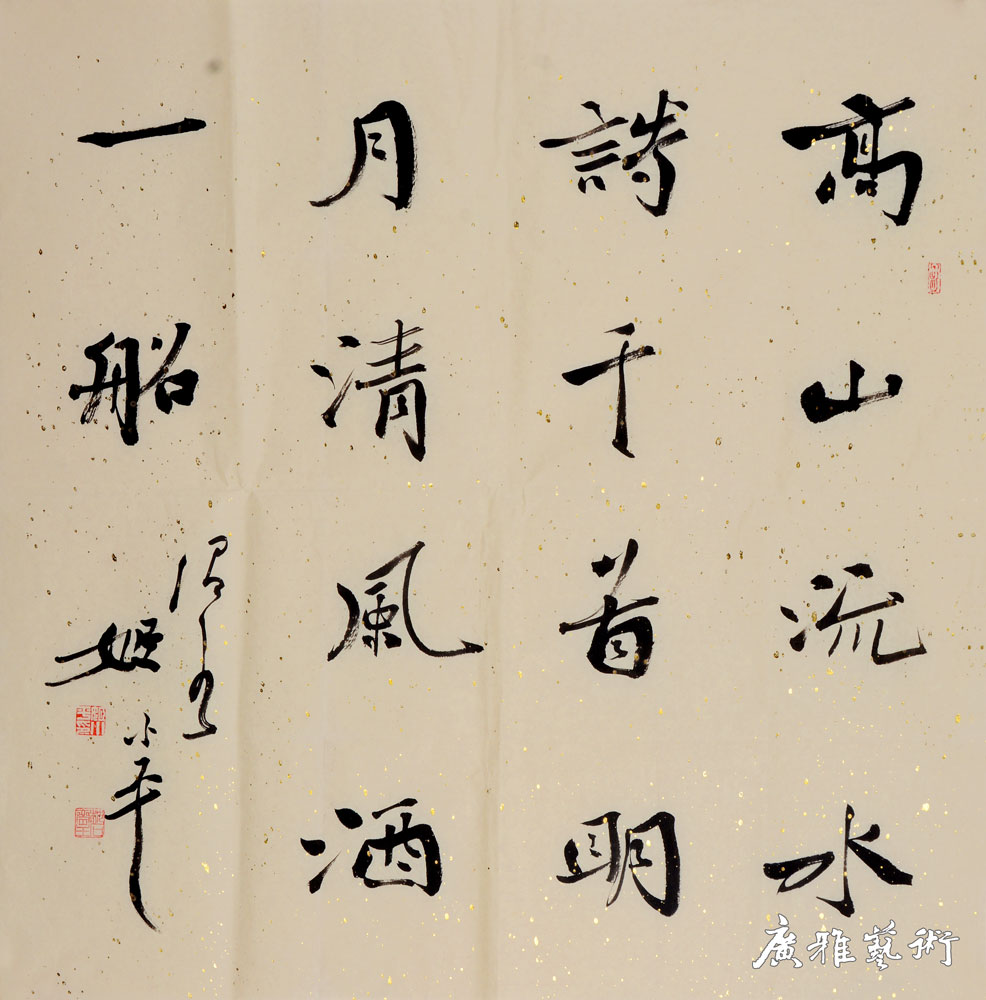 高山流水
詩千首明
月清風酒
一船
姬小平
廣雅藝術